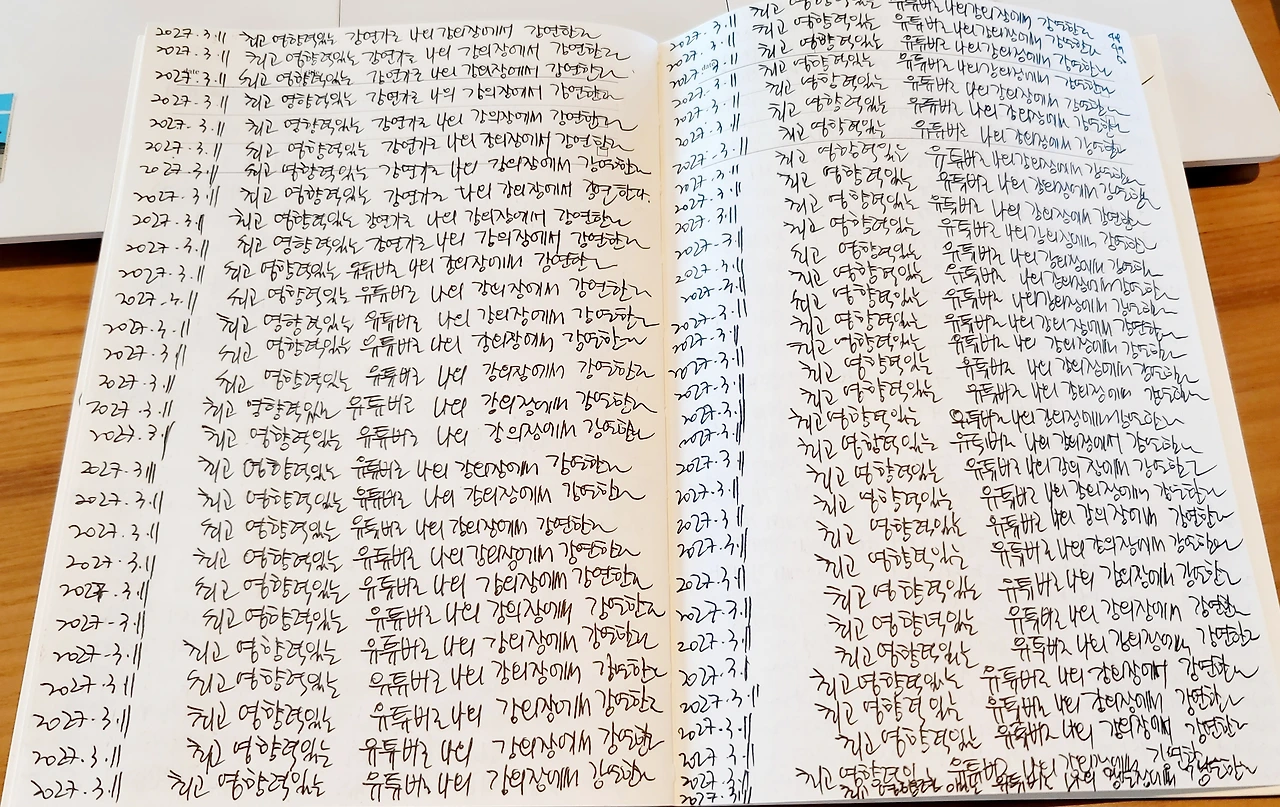 2027.3.11 최고 영향력있는 강연가로 나의 강의장에서 강연한다
2027.3.11 최고 영향력있는 강연가로 나의 강의장에서 강연한다
2027.3.11 최고 영향력있는 강연가로 나의 강의장에서 강연한다
2027.3.11 최고 영향력있는 강연가로 나의 강의장에서 강연한다
2027.3.11 최고 영향력있는 강연가로 나의 강의장에서 강연한다
2027.3.11 최고 영향력있는 강연가로 나의 강의장에서 강연한다
2027.3.11 최고 영향력있는 강연가로 나의 강의장에서 강연한다
2027.3.11 최고 영향력있는 강연가로 나의 강의장에서 강연한다.
2027.3.11 최고 영향력있는 강연가로 나의 강의장에서 강연한다
2027.3.11 최고 영향력있는 강연가로 나의 강의장에서 강연한다
2027.3.11 최고 영향력있는 유튜버로 나의 강의장에서 강연한다
2027.3.11 최고 영향력있는 유튜버로 나의 강의장에서 강연한다
2027.3.11 최고 영향력있는 유튜버로 나의 강의장에서 강연한다
2027.3.11 최고 영향력있는 유튜버로 나의 강의장에서 강연한다
2027.3.11 최고 영향력있는 유튜버로 나의 강의장에서 강연한다
2027.3.11 최고 영향력있는 유튜버로 나의 강의장에서 강연한다
2027.3.11 최고 영향력있는 유튜버로 나의 강의장에서 강연한다
2027.3.11 최고 영향력있는 유튜버로 나의 강의장에서 강연한다
2027.3.11 최고 영향력있는 유튜버로 나의 강의장에서 강연한다
2027.3.11 최고 영향력있는 유튜버로 나의 강의장에서 강연한다
2027.3.11 최고 영향력있는 유튜버로 나의 강의장에서 강연한다
2027.3.11 최고 영향력있는 유튜버로 나의 강의장에서 강연한다
2027.3.11 최고 영향력있는 유튜버로 나의 강의장에서 강연한다
2027.3.11 최고 영향력있는 유튜버로 나의 강의장에서 강연한다
2027.3.11 최고 영향력있는 유튜버로 나의 강의장에서 강연한다
2027.3.11 최고 영향력있는 유튜버로 나의 강의장에서 강연한다
2027.3.11 최고 영향력있는 유튜버로 나의 강의장에서 강연한다
2027.3.11 최고 영향력있는 유튜버로 나의 강의장에서 강연한다
2027.3.11 최고 영향력있는 유튜버로 나의 강의장에서 강연한다
2027.3.11 최고 영향력있는 유튜버로 나의 강의장에서 강연한다
2027.3.11 최고 영향력있는 유튜버로 나의 강의장에서 강연한다
2027.3.11 최고 영향력있는 유튜버로 나의 강의장에서 강연한다
2027.3.11 최고 영향력있는 유튜버로 나의 강의장에서 강연한다
2027.3.11 최고 영향력있는 유튜버로 나의 강의장에서 강연한다
2027.3.11 최고 영향력있는 유튜버로 나의 강의장에서 강연한다
2027.3.11 최고 영향력있는 유튜버로 나의 강의장에서 강연한다
2027.3.11 최고 영향력있는 유튜버로 나의 강의장에서 강연한다
2027.3.11 최고 영향력있는 유튜버로 나의 강의장에서 강연한다
2027.3.11 최고 영향력있는 유튜버로 나의 강의장에서 강연한다
2027.3.11 최고 영향력있는 유튜버로 나의 강의장에서 강연한다
2027.3.11 최고 영향력있는 유튜버로 나의 강의장에서 강연한다
2027.3.11 최고 영향력있는 유튜버로 나의 강의장에서 강연한다
2027.3.11 최고 영향력있는 유튜버로 나의 강의장에서 강연한다
2027.3.11 최고 영향력있는 유튜버로 나의 강의장에서 강연한다
2027.3.11 최고 영향력있는 유튜버로 나의 강의장에서 강연한다
2027.3.11 최고 영향력있는 유튜버로 나의 강의장에서 강연한다
2027.3.11 최고 영향력있는 유튜버로 나의 강의장에서 강연한다
2027.3.11 최고 영향력있는 유튜버로 나의 강의장에서 강연한다
2027.3.11 최고 영향력있는 유튜버로 나의 강의장에서 강연한다
2027.3.11 최고 영향력있는 유튜버로 나의 강의장에서 강연한다
2027.3.11 최고 영향력있는 유튜버로 나의 강의장에서 강연한다
2027.3.11 최고 영향력있는 유튜버로 나의 강의장에서 강연한다
2027.3.11 최고 영향력있는 유튜버로 나의 강의장에서 강연한다
2027.3.11 최고 영향력있는 유튜버로 나의 강의장에서 강연한다
2027.3.11 최고 영향력있는 유튜버로 나의 강의장에서 강연한다
2027.3.11 최고 영향력있는 유튜버로 나의 강의장에서 강연한다
2027.3.11 최고 영향력있는 유튜버로 나의 강의장에서
2027.3.11